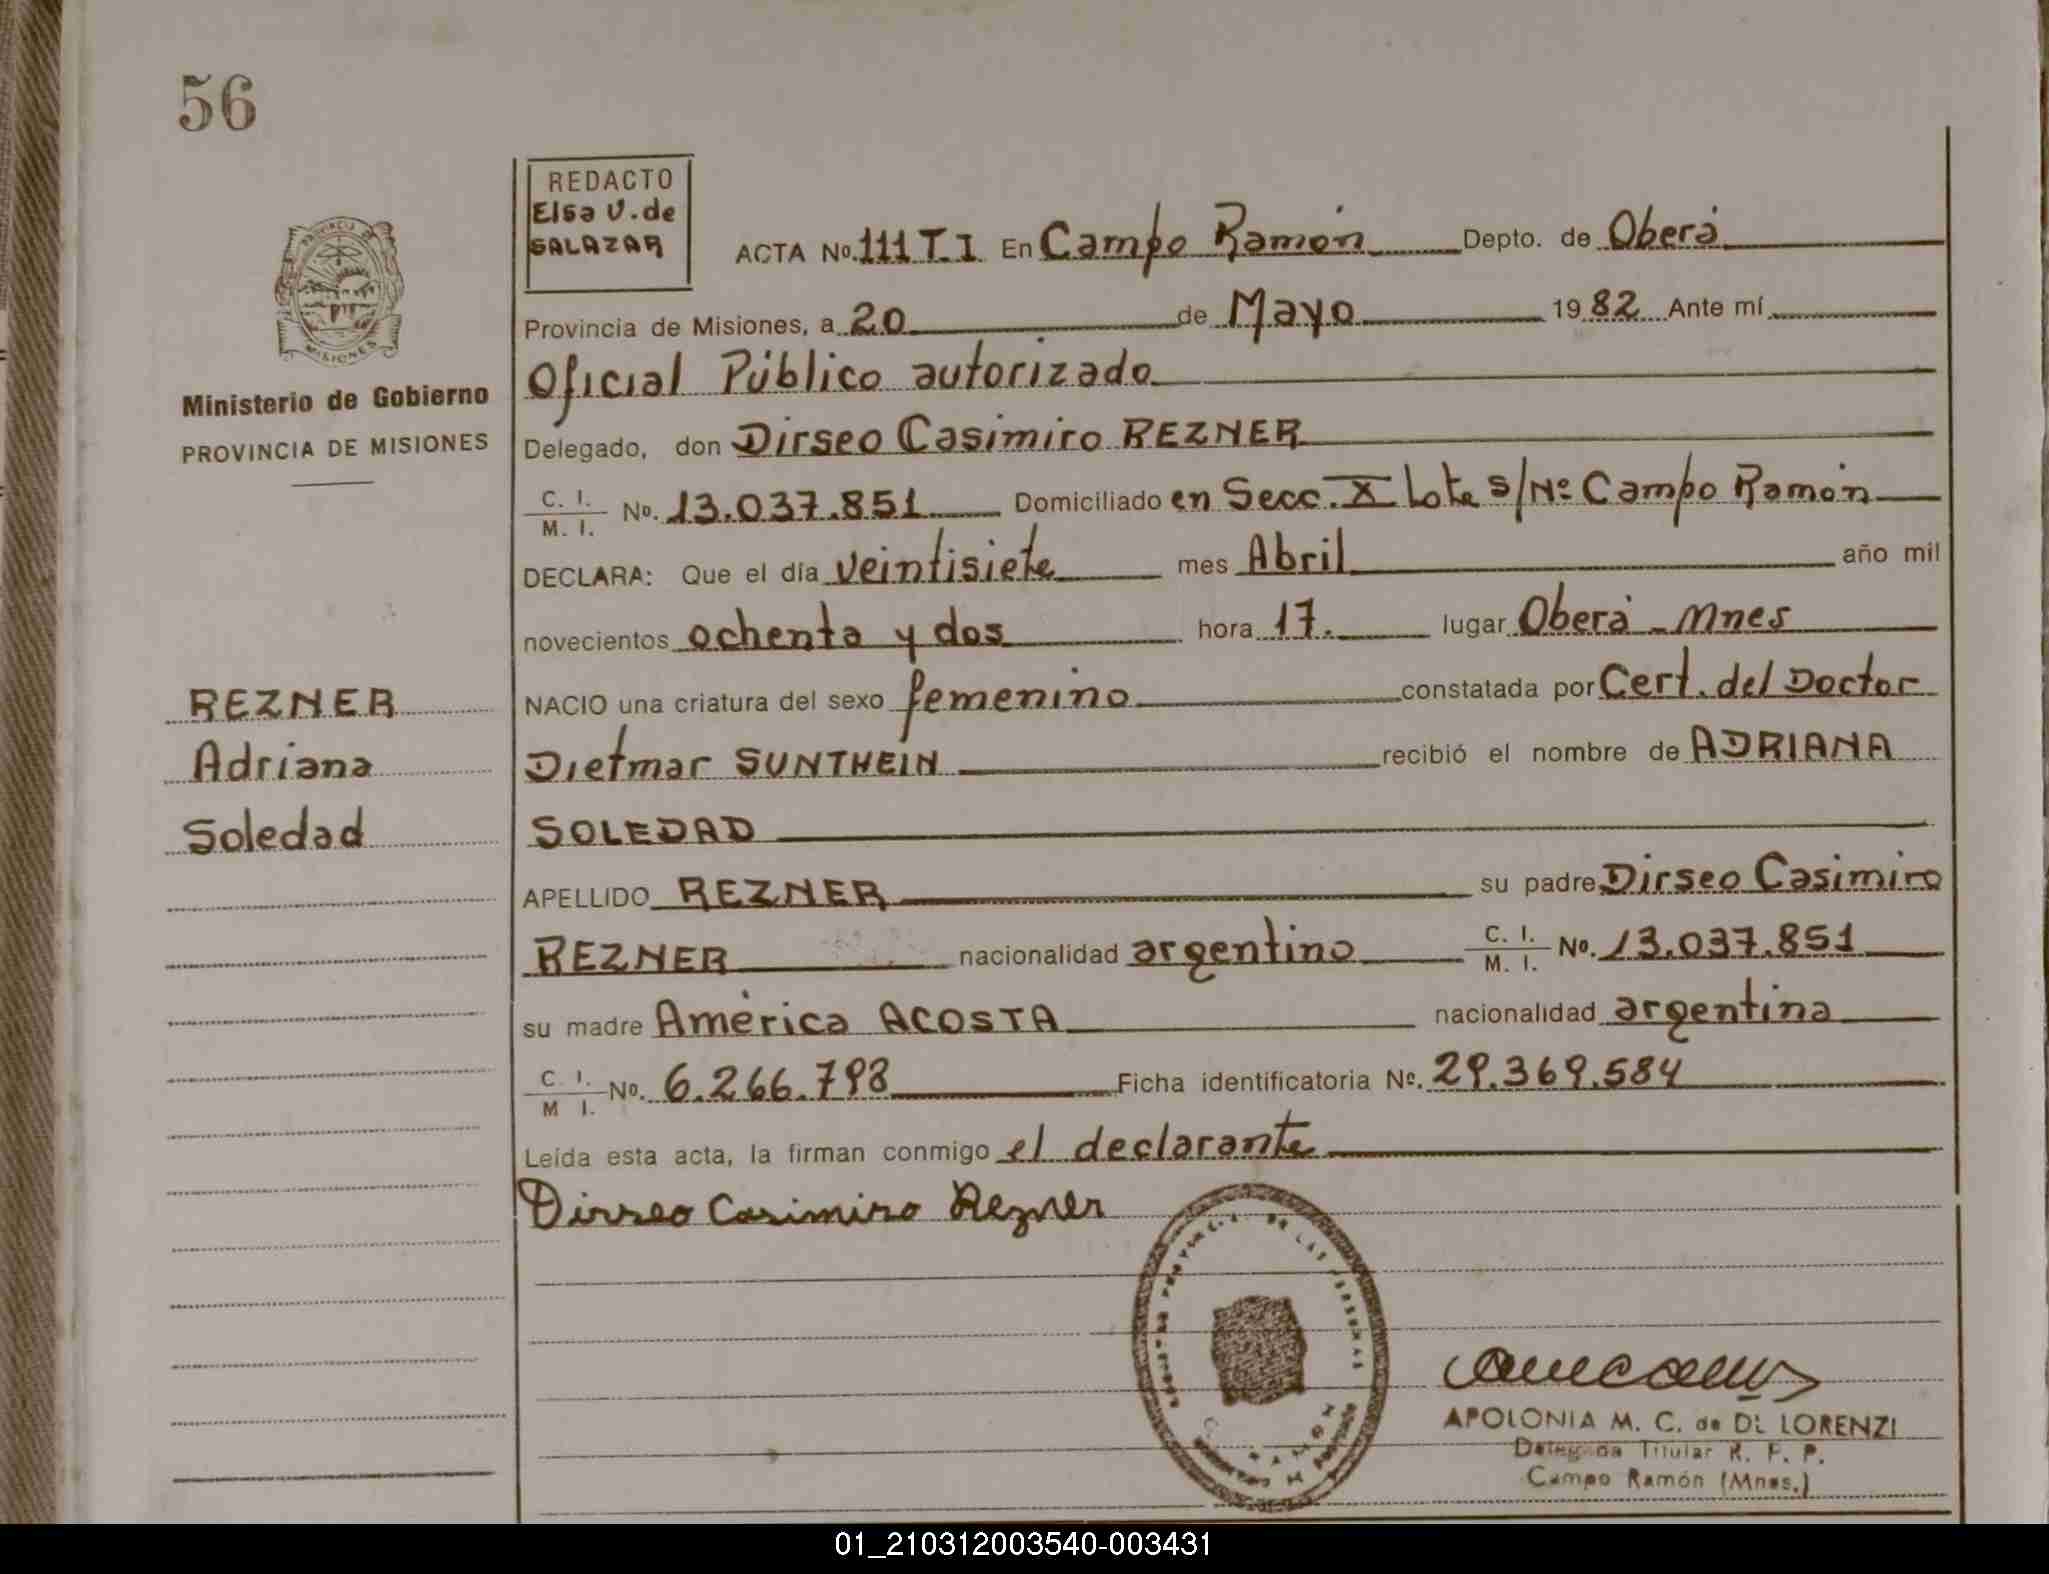 56
REDACTO
Elsa V. de
SALAZAR
ACTA No. 111 T. I En Campo Ramón Depto. de Oberá
Provincia de Misiones, a 20 de Mayo 1982 Ante mí
Oficial Público autorizado
Delegado, don Dirseo Casimiro REZNER
C. I.
M. I. No. 13.037.851 Domiciliado en Secc. X Lote s/Nº Campo Ramón
DECLARA: Que el día veintisiete mes Abril año mil
novecientos ochenta y dos hora 17. lugar Oberá - Mnes
NACIO una criatura del sexo femenino constatada por Cert. del Doctor
Dietmar SUNTHEIN recibió el nombre de ADRIANA
SOLEDAD
APELLIDO REZNER su padre Dirseo Casimiro
REZNER nacionalidad argentino C. I.
M. I. No. 13.037.851
su madre América ACOSTA nacionalidad argentina
C. I.
M I. No. 6.266.798 Ficha identificatoria Nº. 29.369.584
Leída esta acta, la firman conmigo el declarante
Dirseo Casimiro Rezner
MISIONES
Ministerio de Gobierno
PROVINCIA DE MISIONES
REZNER
Adriana
Soledad
DE LAS PERSONAS
APOLONIA M. C. de DE LORENZI
Delegada Titular R. P. P.
Campo Ramón (Mnes.)
01_210312003540-003431